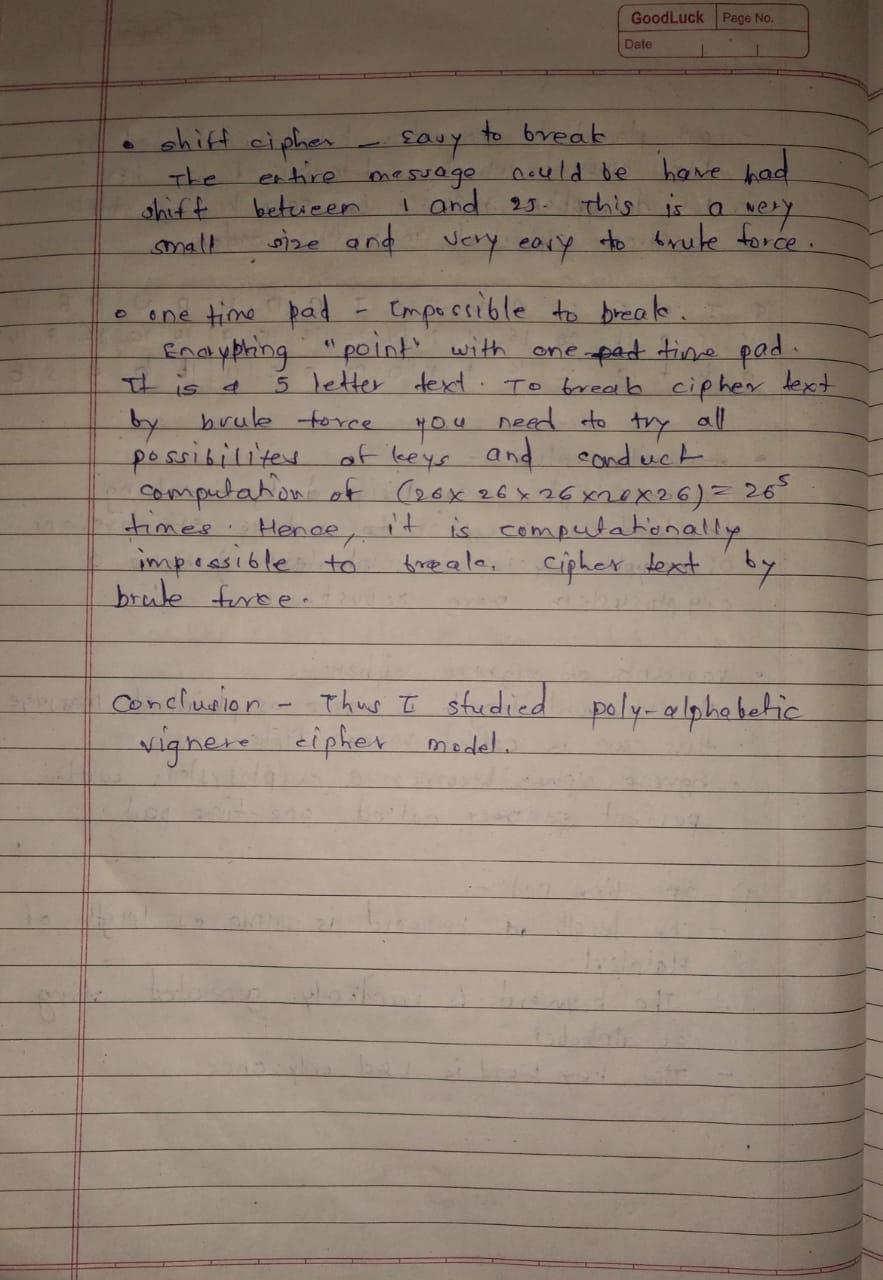 GoodLuck Page No.
Date
• shift cipher - Easy to break
The entire message would be have had
shift between 1 and 25. This is a very
small size and very easy to brute force.
• one time pad - Impossible to break.
Encrypting "point" with one pad time pad.
It is a 5 letter text. To break cipher text
by brute force you need to try all
possibilites of keys and conduct
computation of (26 x 26 x 26 x 26 x 26) = 26⁵
times. Hence, it is computationally
impossible to break, cipher text by
brute force.
Conclusion - Thus I studied poly-alphabetic
vignere cipher model.